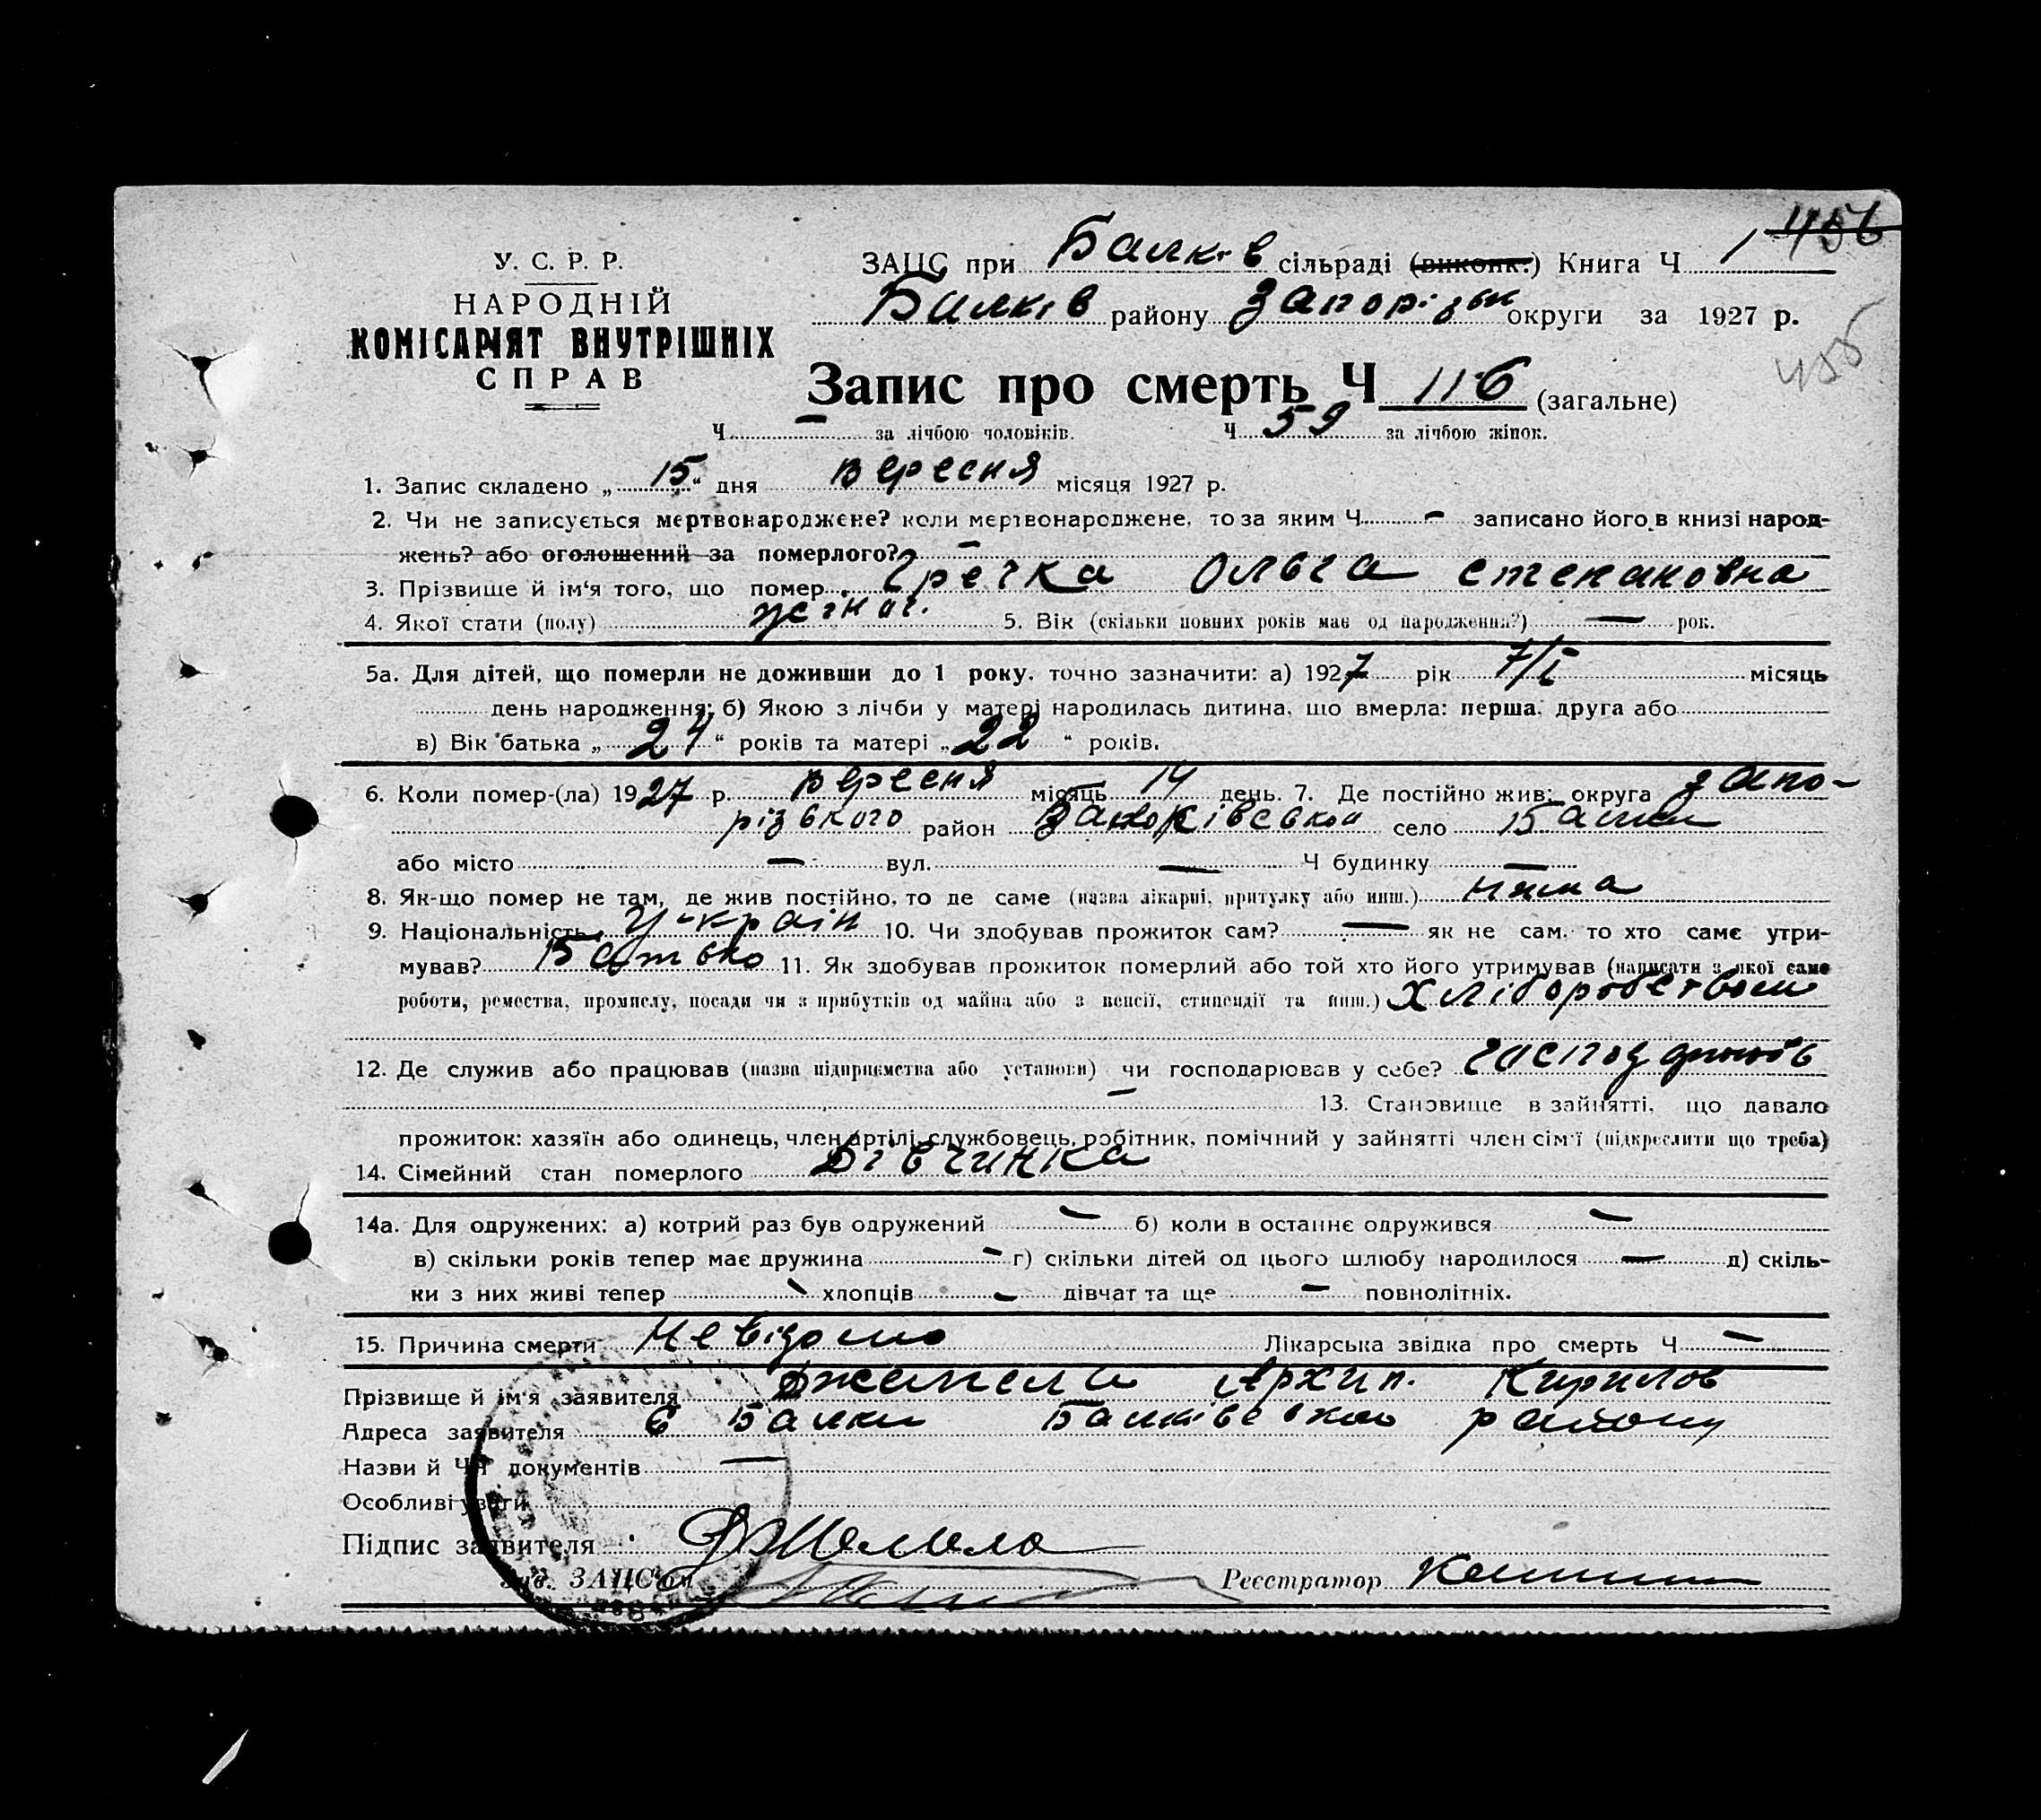 456
У. С. Р. Р.
НАРОДНІЙ
КОМІСАРІЯТ ВНУТРІШНІХ
СПРАВ
ЗАЦС при Балків сільраді (виконк.) Книга Ч 1
Балків району Запорізьк округи за 1927 р.
455
Запис про смерть Ч 116 (загальне)
Ч — за лічбою чоловіків. Ч 59 за лічбою жінок.
1. Запис складено „15“ дня вересня місяця 1927 р.
2. Чи не записується мертвонароджене? коли мертвонароджене, то за яким Ч — записано його в книзі народ-
жень? або оголошений за померлого? —
3. Прізвище й ім'я того, що помер Гречка Ольга Степановна
4. Якої стати (полу) жіноч. 5. Вік (скільки повних років має од народження?) — рок.
5а. Для дітей, що померли не доживши до 1 року, точно зазначити: а) 1927 рік 7/I місяць
день народження; б) Якою з лічби у матері народилась дитина, що вмерла: перша, друга або
в) Вік батька „24“ років та матері „22“ років.
6. Коли помер-(ла) 1927 р. вересня місяць 14 день. 7. Де постійно жив: округа Запо-
різького район село Балки
або місто — вул. — Ч будинку —
8. Як-що помер не там, де жив постійно, то де саме (назва лікарні, притулку або инш.)
9. Національність Україн 10. Чи здобував прожиток сам? — як не сам, то хто саме утри-
мував? Батько 11. Як здобував прожиток померлий або той хто його утримував (написати з якої саме
роботи, ремества, промислу, посади чи з прибутків од майна або з пенсії, стипендії та инш.) Хліборобством
12. Де служив або працював (назва підприємства або установи) чи господарював у себе?
— 13. Становище в зайнятті, що давало
прожиток: хазяїн або одинець, член артілі, службовець, робітник, помічний у зайнятті член сім'ї (підкреслити що треба)
14. Сімейний стан померлого Дівчинка
14а. Для одружених: а) котрий раз був одружений — б) коли в останнє одружився —
в) скільки років тепер має дружина — г) скільки дітей од цього шлюбу народилося — д) скіль-
ки з них живі тепер — хлопців — дівчат та ще — повнолітніх.
15. Причина смерти Невідомо Лікарська звідка про смерть Ч —
Прізвище й ім'я заявителя Джемела Архип. Кирилов
Адреса заявителя с Балки Балківського району
Назви й ЧЧ документів —
Особливі уваги
Підпис заявителя Джемела
Зав. ЗАЦС'ом
Реєстратор